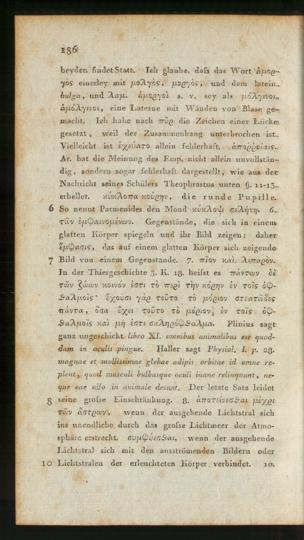 186
beyden findet Statt. Ich glaube, daſs das Wort ἀμορ-
γος einerley mit μολγὸς, μοργὸς, und dem latein.
bulga, und λαμ. ἀμοργοὶ s. v. sey als μόλγινοι,
ἀμόλγινοι, eine Laterne mit Wänden von Blase ge-
macht. Ich habe nach πῦρ die Zeichen einer Lücke
gesetzt, weil der Zusammenhang unterbrochen ist.
Vielleicht ist ἐχεύατο allein fehlerhaft. ἀποῤῥοίαις.
Ar. hat die Meinung des Emp. nicht allein unvollstän-
dig, sondern sogar fehlerhaft dargestellt, wie aus der
Nachricht seines Schülers Theophrastus unten §. 12-13.
erhellet. κύκλοπα κούρην, die runde Pupille.
6 So nennt Parmenides den Mond κύκλωψ σελήνη. 6.
τῶν ἐμφαινομένων. Gegenstände, die sich in einem
glatten Körper spiegeln und ihr Bild zeigen; daher
ἔμφασις, das auf einem glatten Körper sich zeigende
7 Bild von einem Gegenstande. 7. πῖον καὶ λιπαρόν.
In der Thiergeschichte 3. K. 18. heiſst es πάντων δὲ
τῶν ζώων κοινόν ἐστι τὸ περὶ τὴν κόρην ἐν τοῖς ὀφ-
θαλμοῖς· ἔχουσι γὰρ τοῦτο τὸ μόριον στεατῶδες
πάντα, ὅσα ἔχει τοῦτο τὸ μόριον, ἐν τοῖς ὀφ-
θαλμοῖς καὶ μὴ ἐστὶ σκληρόφθαλμα. Plinius sagt
ganz ungeschickt libro XI. omnibus animalibus est quod-
dam in oculis pingue. Haller sagt Physiol. l. p. 28.
magnae et mollissimae glebae adipis orbitae id omne re-
plent, quod musculi bulbusque oculi inane relinquunt, ne-
que eae ullo in animale desunt. Der letzte Satz leidet
8 seine groſse Einschränkung. 8. ἀποτείνεσθαι μέχρι
τῶν ἄστρων, wenn der ausgehende Lichtstral sich
ins unendliche durch das groſse Lichtmeer der Atmo-
sphäre erstreckt. συμφύεσθαι, wenn der ausgehende
Lichtstral sich mit den ausströmenden Bildern oder
10 Lichtstralen der erleuchteten Körper verbindet. 10.